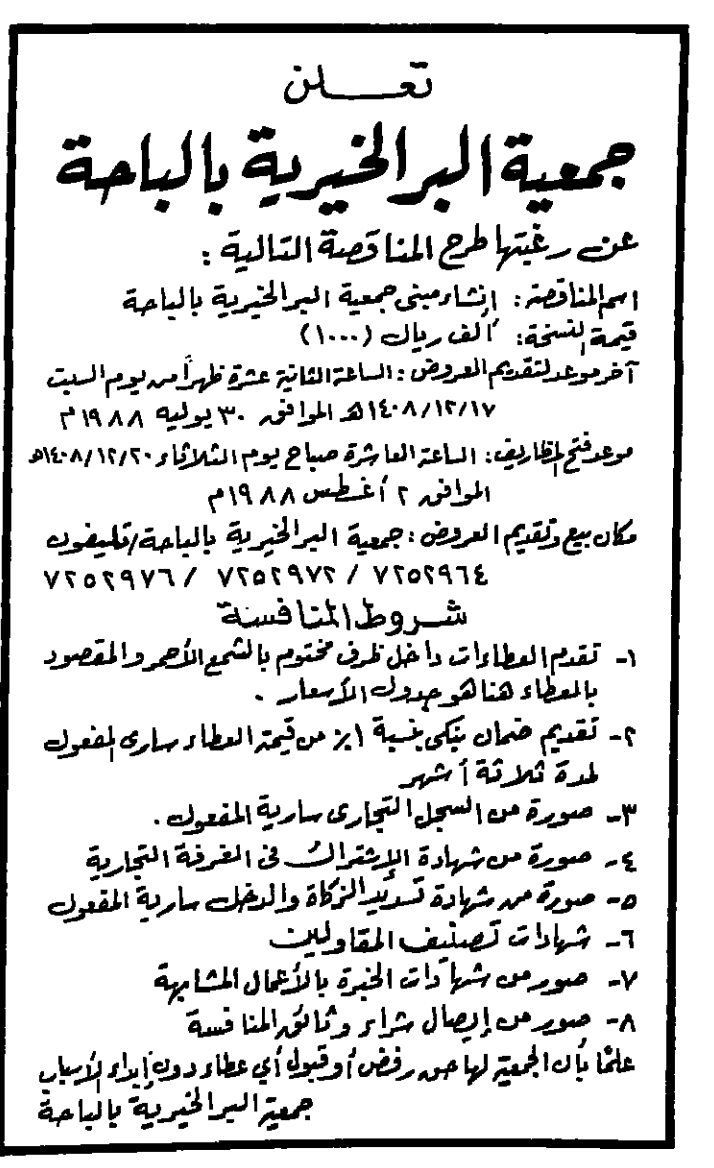 تعلن
جمعية البر الخيرية بالباحة
عن رغبتها طرح المناقصة التالية :
اسم المناقصة : إنشاء مبنى جمعية البر الخيرية بالباحة
قيمة النسخة : ألف ريال (١٠٠٠)
آخر موعد لتقديم العروض : الساعة الثانية عشرة ظهراً من يوم السبت
١٤٠٨/١٢/١٧هـ الموافق ٣٠ يوليه ١٩٨٨م
موعد فتح المظاريف : الساعة العاشرة صباح يوم الثلاثاء ١٤٠٨/١٢/٢٠هـ
الموافق ٢ أغسطس ١٩٨٨م
مكان بيع وتقديم العروض : جمعية البر الخيرية بالباحة / تليفون
٧٢٥٢٩٦٤ / ٧٢٥٢٩٧٢ / ٧٢٥٢٩٧٦
شروط المنافسة
١- تقدم العطاءات داخل ظرف مختوم بالشمع الأحمر والمقصود
بالعطاء هنا هو جدول الأسعار .
٢- تقديم ضمان بنكي بنسبة ١٪ من قيمة العطاء ساري المفعول
لمدة ثلاثة أشهر
٣- صورة من السجل التجاري سارية المفعول .
٤- صورة من شهادة الإشتراك في الغرفة التجارية
٥- صورة من شهادة تسديد الزكاة والدخل سارية المفعول
٦- شهادات تصنيف المقاولين
٧- صور من شهادات الخبرة بالأعمال المشابهة
٨- صور من إيصال شراء وثائق المنافسة
علمًا بأن الجمعية لها حق رفض أو قبول أي عطاء دون إبداء الأسباب
جمعية البر الخيرية بالباحة